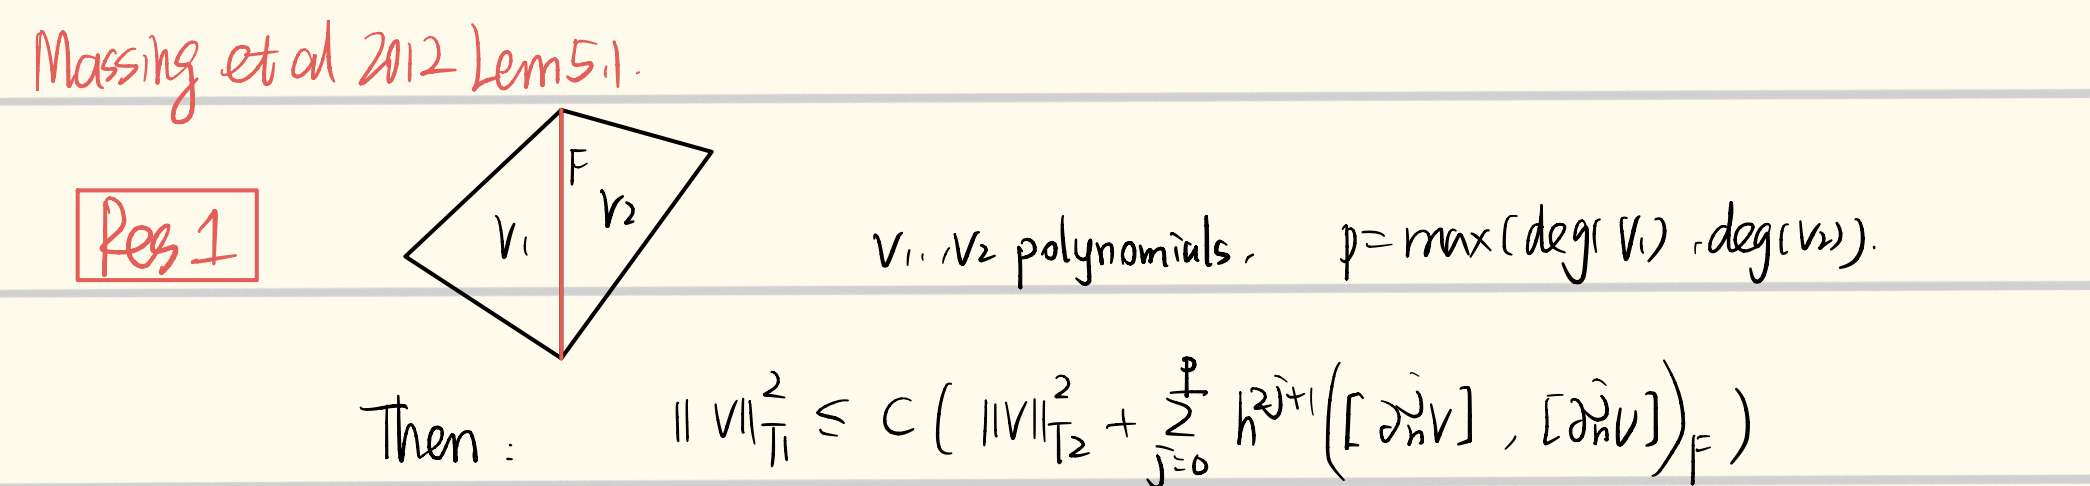 Massing et al 2012 Lem 5.1.
F
Res 1
V₁ V₂
V₁, V₂ polynomials. p = max(deg(V₁), deg(V₂)).
Then: ||V||²_{T₁} ≤ C ( ||V||²_{T₂} + Σ_{j=0}^{p} h^{2j+1} ([∂ₙʲV], [∂ₙʲV])_F )